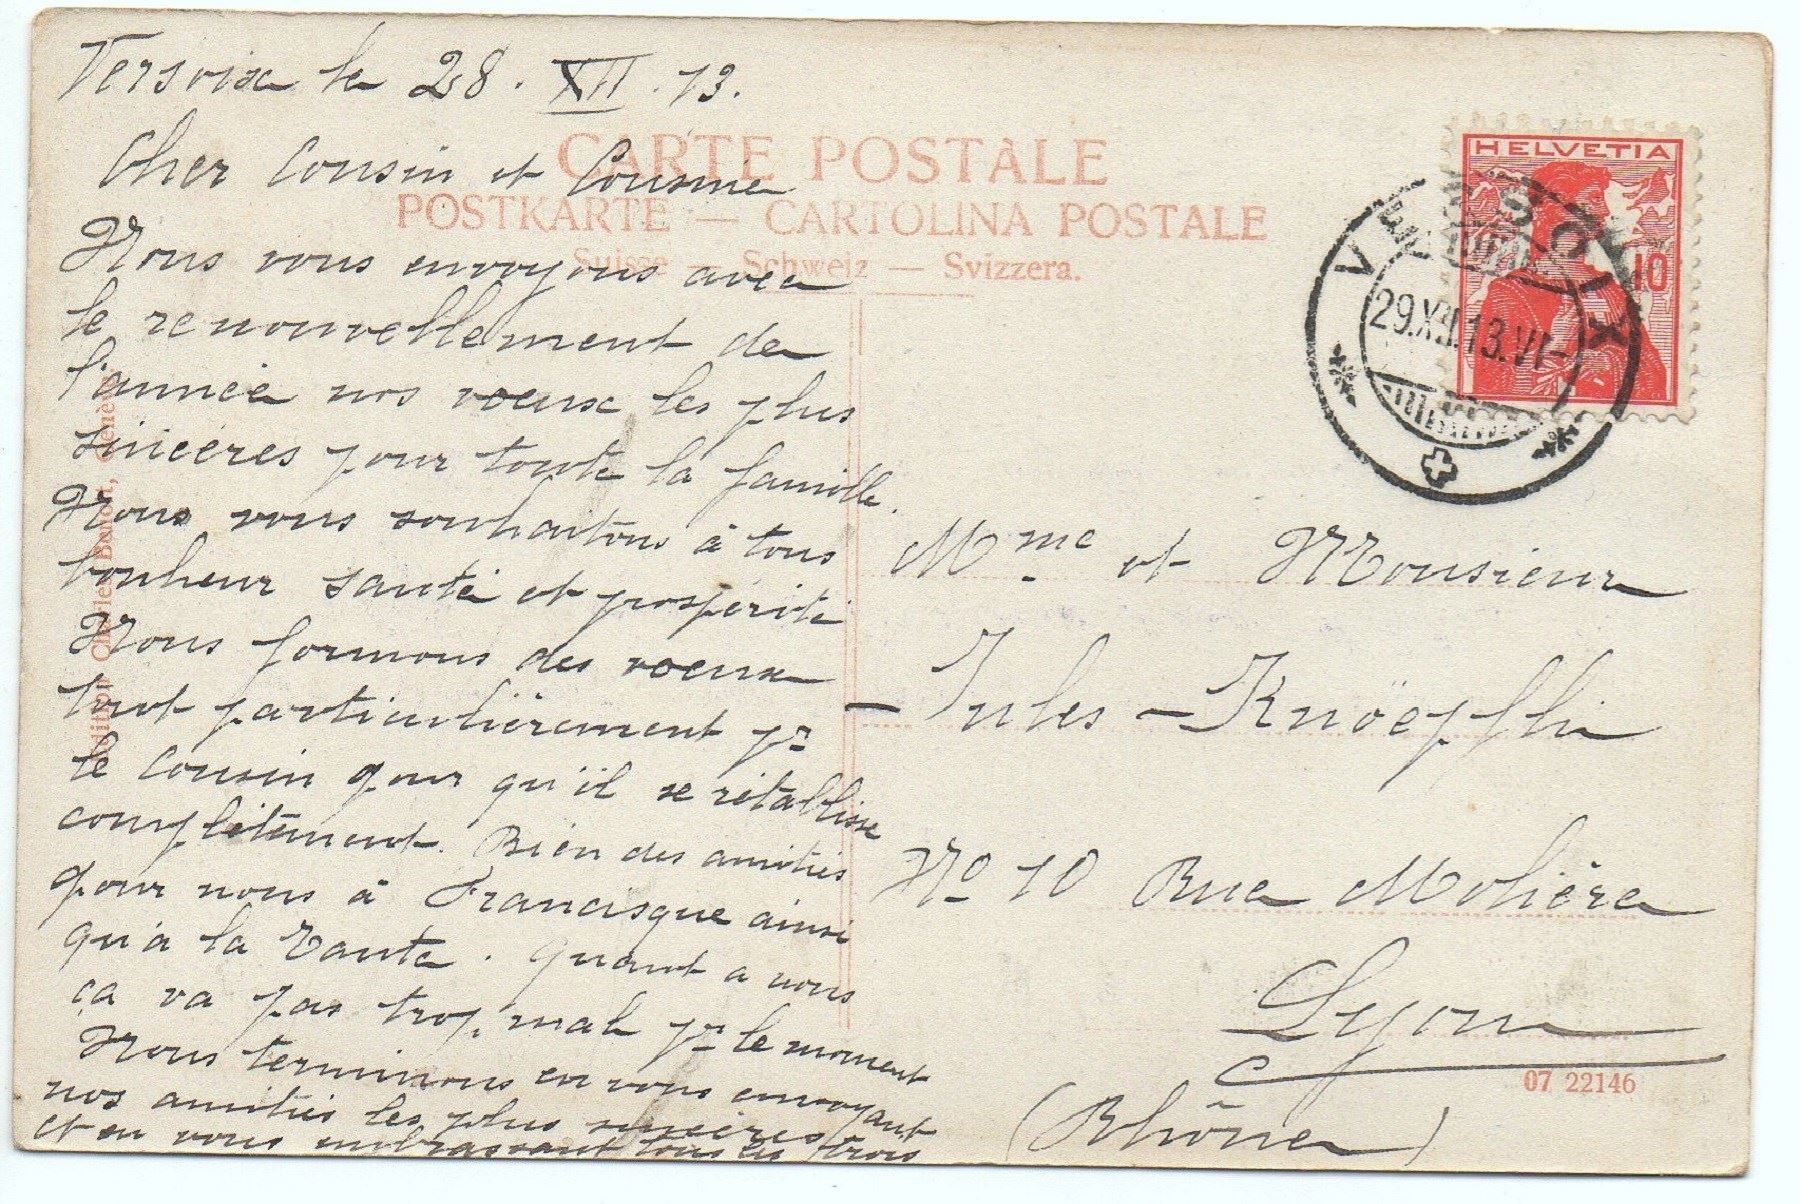 Versoix le 28. XII. 13.
CARTE POSTALE
POSTKARTE — CARTOLINA POSTALE
Suisse — Schweiz — Svizzera.
Cher Cousin et Cousine
Nous vous envoyons avec
le renouvellement de
l'année nos voeux les plus
sincères pour toute la famille.
Nous vous souhaitons à tous
bonheur santé et prospérité
Nous formons des voeux
tout particulièrement pr
le cousin pour qu'il se rétablisse
complètement. Bien des amitiés
pour nous à Francisque ainsi
qu'à la Tante. Quant a nous
ça va pas trop mal pr le moment
Nous terminons en vous envoyant
nos amitiés les plus sincères
et en vous embrassant tous les trois
Edition Genève.
HELVETIA
10
VERSOIX
29.XII.13.VI-
Mme et Monsieur
- Jules - Knöepfli
No 10 Rue Molière
Lyon
(Rhône)
07 22146